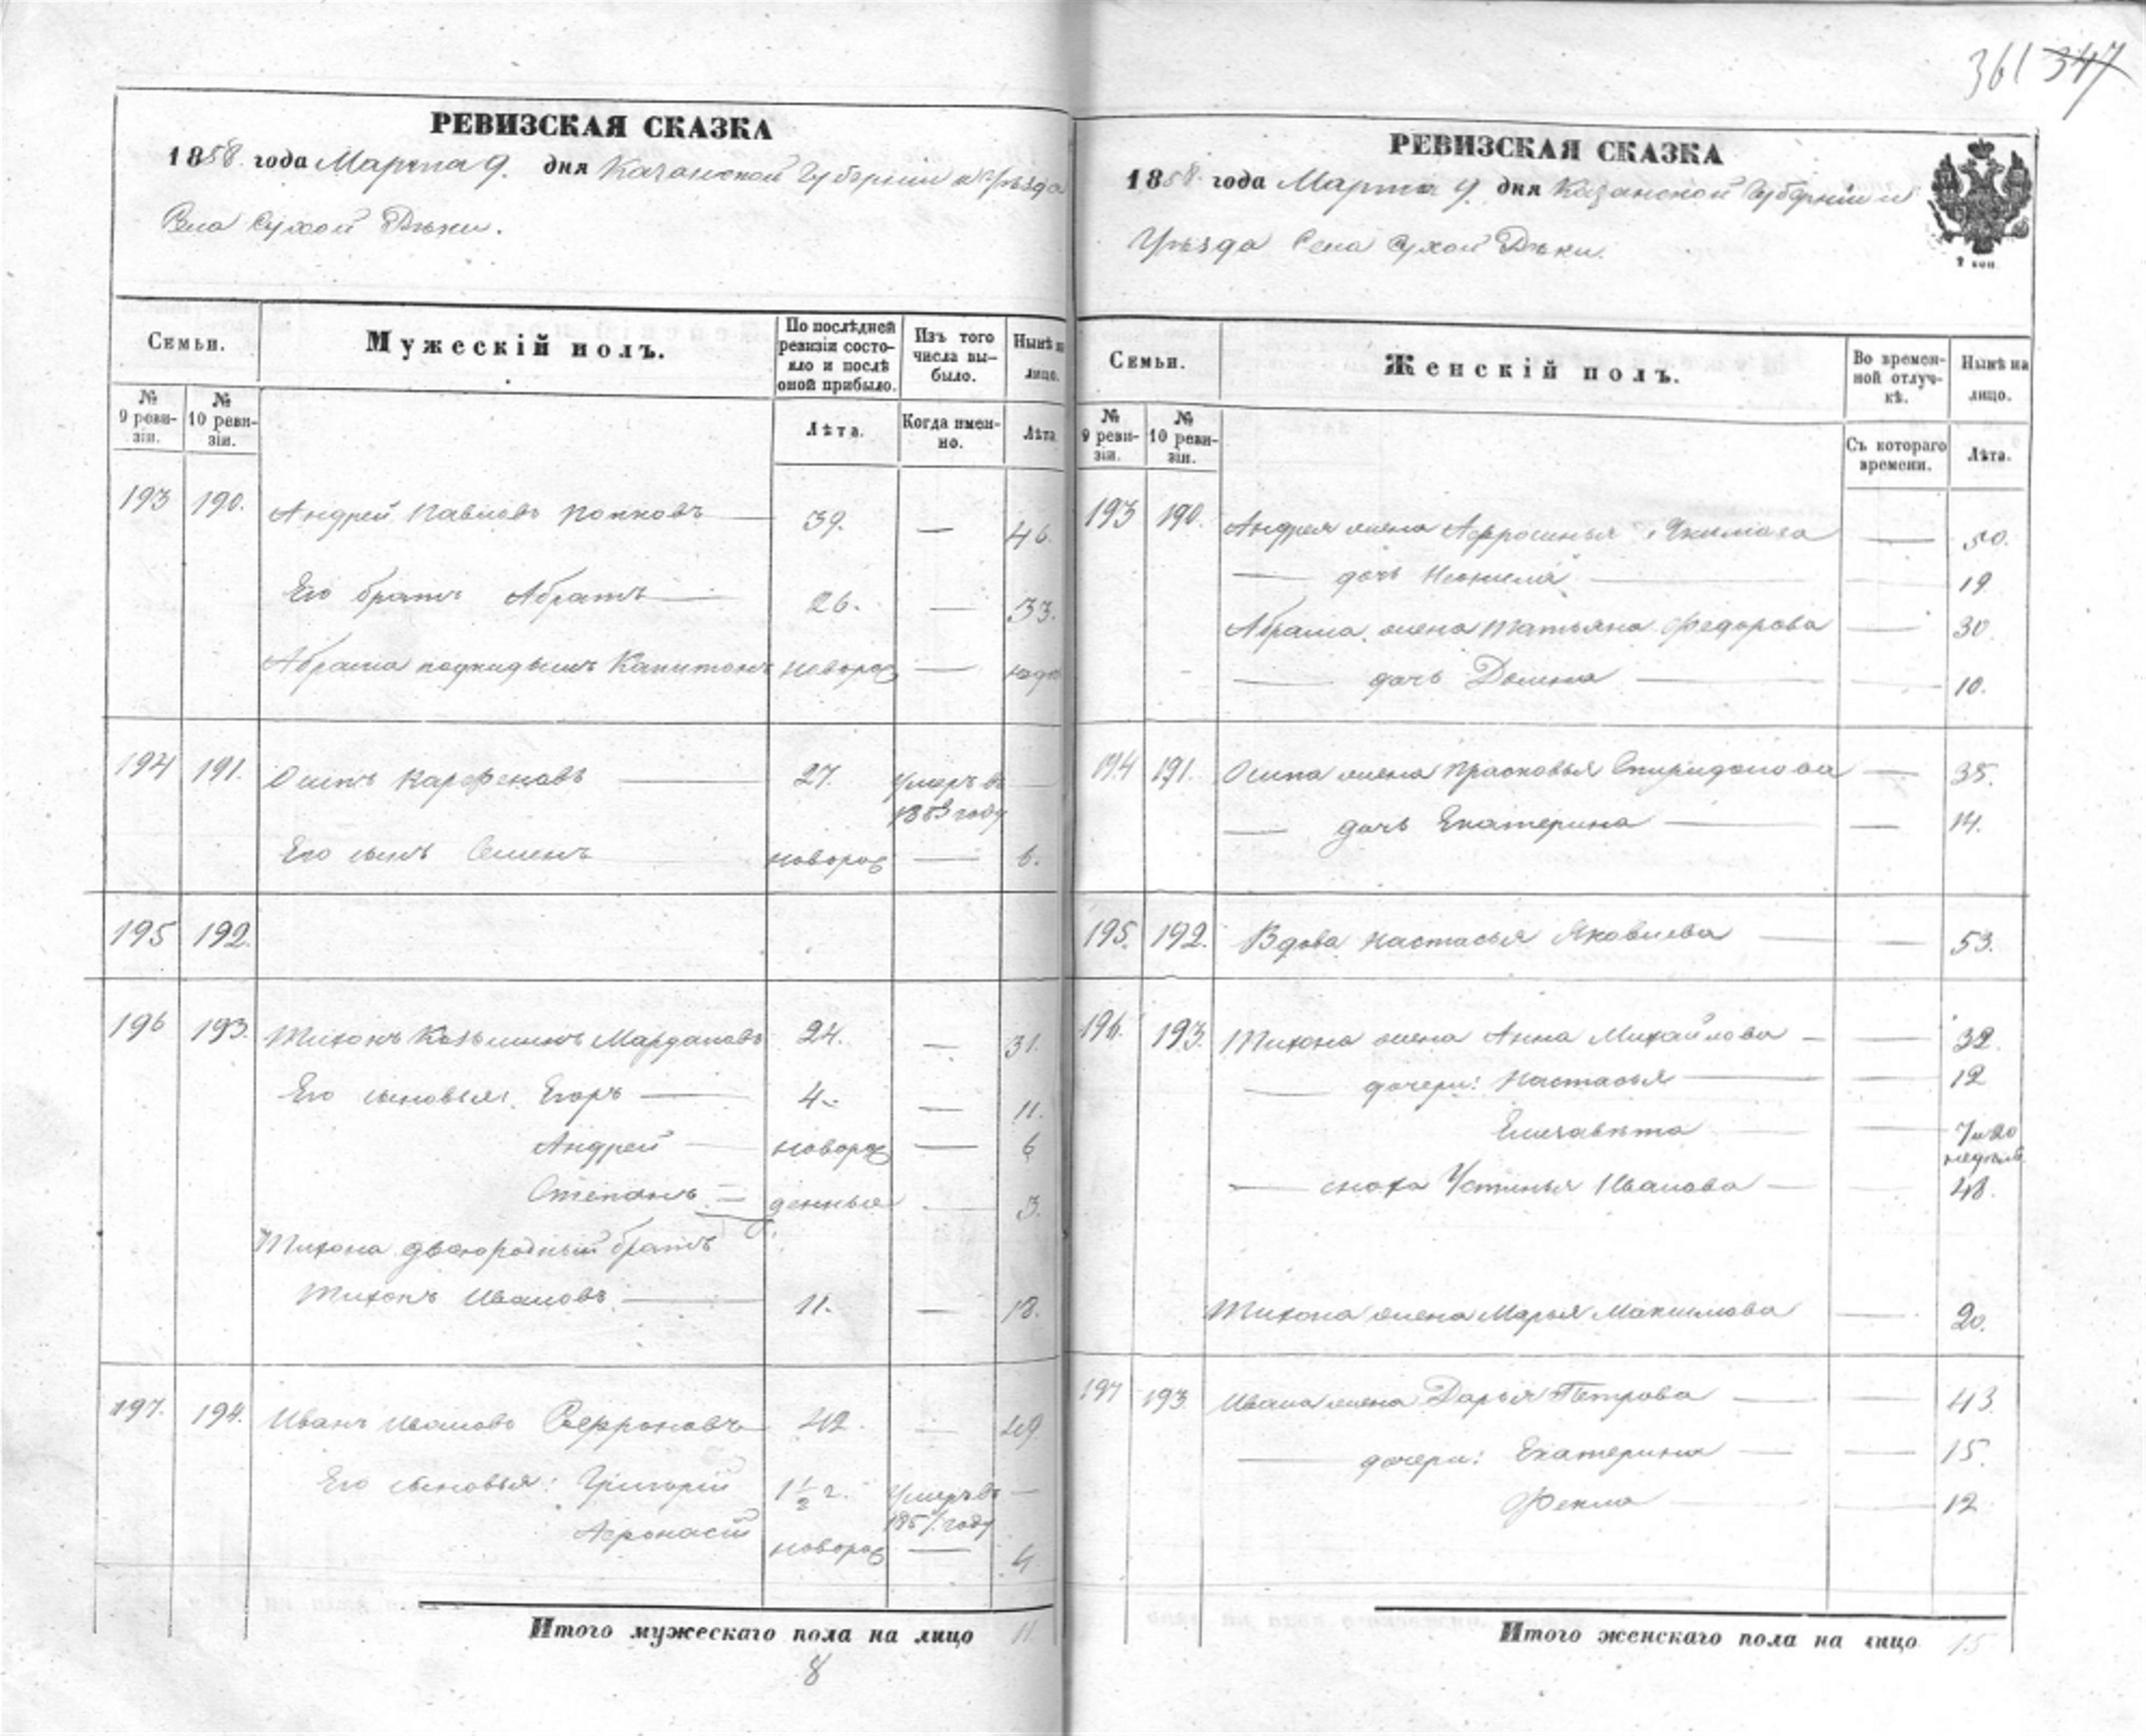 361 347
РЕВИЗСКАЯ СКАЗКА
1858. года Марта 9. дня Казанской Губернии и Уѣзда
Села Сухой Рѣки.
Семьи.
Мужескій полъ.
По послѣдней ревизіи состояло и послѣ оной прибыло.
Изъ того числа выбыло.
Нынѣ на лицо.
№ 9 ревизіи.
№ 10 ревизіи.
Лѣта.
Когда именно.
Лѣта
193 190. Андрей Павловъ Попковъ — 39. — 46.
Его братъ Абрамъ — 26. — 33.
Абрама подкидышъ Капитонъ новорож —
194 191. Осипъ Карфеновъ — 27. Умеръ въ 1853 году —
Его сынъ Семенъ новорож — 6.
195 192.
196 193. Тихонъ Козьминъ Мардановъ 24. — 31.
Его сыновья: Егоръ — 4. — 11.
Андрей — новорож — 6
Степанъ — денные — 3.
Тихона двоюродный братъ
Тихонъ Ивановъ. — 11. — 18.
197. 194. Иванъ Ивановъ Сафроновъ 42. — 49
Его сыновья: Григорій 1 1/2 г. Умеръ въ 1851 году —
Афонасій новорож — 4
Итого мужескаго пола на лицо 11
8
РЕВИЗСКАЯ СКАЗКА
1858. года Марта 9. дня Казанской Губерніи и
Уѣзда Села Сухой Рѣки.
2 коп
Семьи.
Женскій полъ.
Во временной отлучкѣ.
Нынѣ на лицо.
№ 9 ревизіи.
№ 10 ревизіи.
Съ котораго времени.
Лѣта.
193 190. Андрея жена Афросинья Якимова — 50.
— дочь Неонила — 19
Абрама жена Татьяна Федорова — 30
— дочь Домна — 10.
194 191. Осипа жена Прасковья Спиридонова — 35.
— дочь Екатерина — — 14.
195. 192. Вдова Настасья Яковлева — — 53.
196. 193. Тихона жена Анна Михайлова — — 32.
— дочери: Настасья — — 12
Елизавѣта — — 7 и 20 недѣль
— сноха Устинья Иванова — 48.
Тихона жена Марья Максимова — 20.
197 193 Ивана жена Дарья Петрова — — 43
— дочери: Екатерина — — 15.
Фекла — — 12
Итого женскаго пола на лицо 15